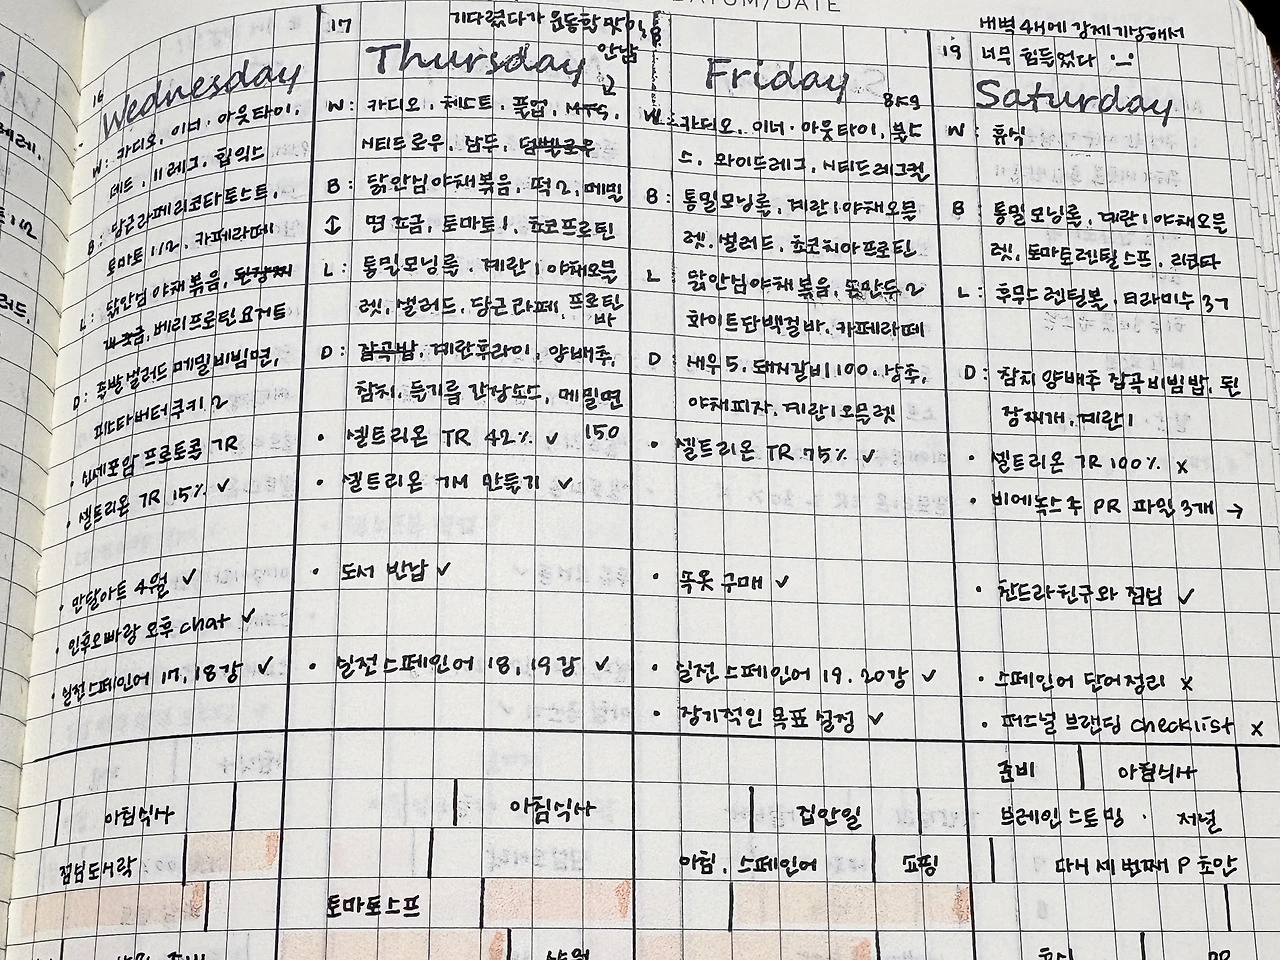 DATUM/DATE
16
Wednesday
W: 카디오, 이너·아웃타이,
데드, 11레그, 힙익스
B: 당근라페리코타토스트,
토마토 1/2, 카페라떼
L: 닭안심야채볶음,
베리프로틴요거트
D: 족발샐러드메밀비빔면,
피스타버터쿠키 2
신세포암 프로토콜 TR
셀트리온 TR 15% ✓
만달아트 4월 ✓
인후오빠랑 오후 chat ✓
실전스페인어 17, 18강 ✓
아침식사
점심도시락
17
기다렸다가 운동할 맛이
안남
Thursday
W: 카디오, 체스트, 풀업, MTS,
N티드로우, 남두, 덤벨로우
B: 닭안심야채볶음, 떡2, 메밀
면 조금, 토마토1, 초코프로틴
L: 통밀모닝롤, 계란1야채오믈
렛, 샐러드, 당근라페, 프로틴
바
D: 잡곡밥, 계란후라이, 양배추,
참치, 들기름 간장소스, 메밀면
150
• 셀트리온 TR 42% ✓
• 셀트리온 TM 만들기 ✓
• 도서 반납 ✓
• 실전스페인어 18, 19강 ✓
아침식사
토마토스프
18
Friday
8kg
W: 카디오, 이너·아웃타이, 불스
스, 와이드레그, N티드레그컬
B: 통밀모닝롤, 계란1야채오믈
렛, 샐러드, 초코치아프로틴
L: 닭안심야채볶음, 손만두2
화이트단백질바, 카페라떼
D: 새우5, 돼지갈비100, 상추,
야채피자, 계란1오믈렛
• 셀트리온 TR 75% ✓
• 속옷 구매 ✓
• 실전스페인어 19, 20강 ✓
• 장기적인 목표 설정 ✓
집안일
아침, 스페인어
쇼핑
새벽 4시에 강제기상해서
19 너무 힘들었다
Saturday
W: 휴식
B: 통밀모닝롤, 계란1야채오믈
렛, 토마토렌틸스프, 리코타
L: 후무스렌틸볼, 티라미수 3T
D: 참치 양배추 잡곡비빔밥, 된
장찌개, 계란1
• 셀트리온 TR 100% x
• 비에녹스주 PR 파일3개 →
• 찬드라친구와 점심 ✓
• 스페인어 단어정리 x
• 퍼스널 브랜딩 checklist x
준비
아침식사
브레인스토밍 · 저널
다시 세 번째 P 초안